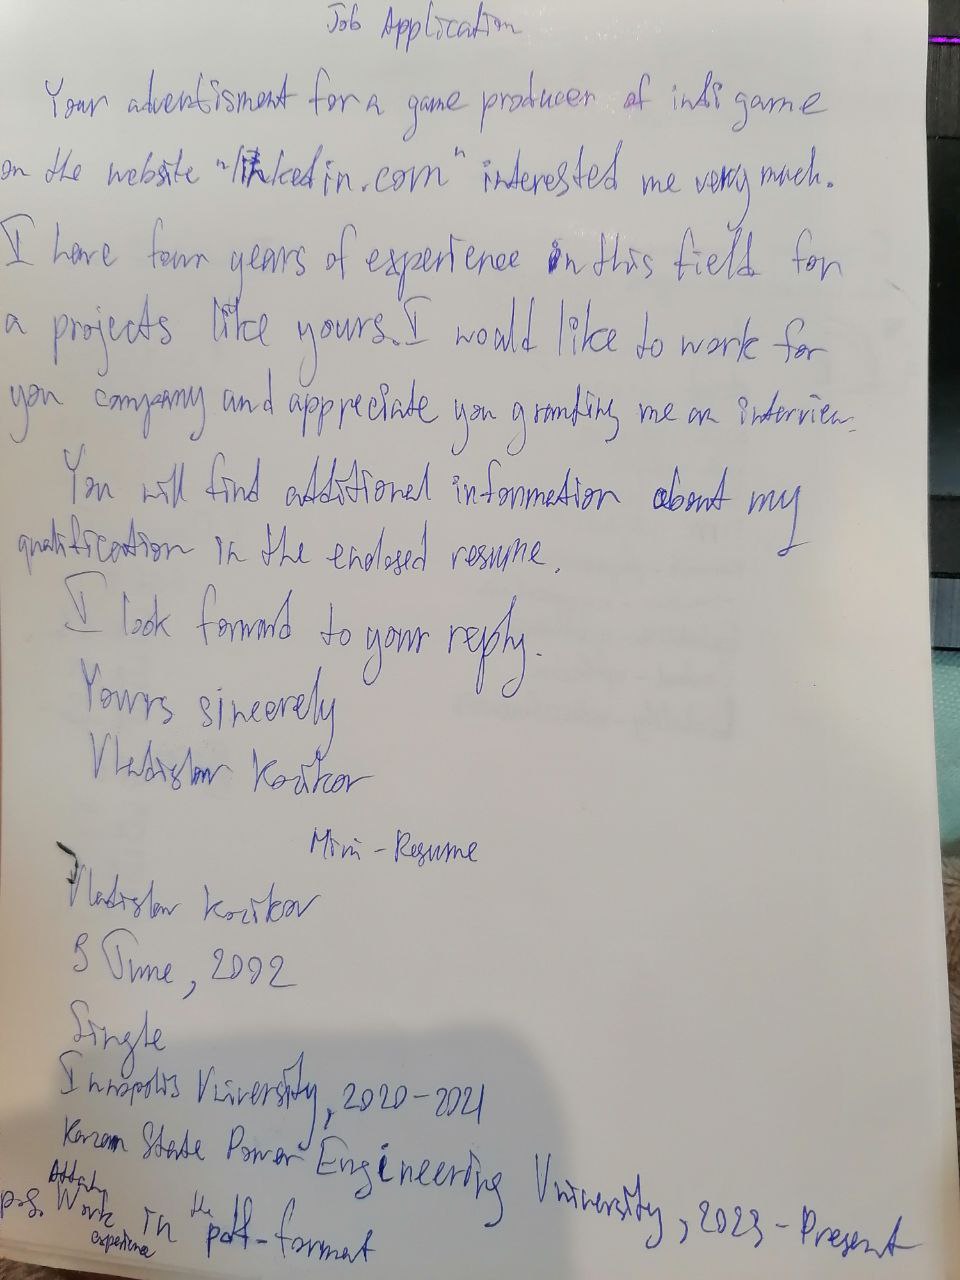 Job Application
Your advertisment for a game producer of indi game
on the website "linkedin.com" interested me very much.
I have four years of experience in this field for
a projects like yours. I would like to work for
you company and appreciate you granting me an interview.
You will find additional information about my
qualification in the enclosed resume.
I look forward to your reply.
Yours sincerely
Vladislav
Mini-Resume
Vladislav
June, 2002
Single
Innopolis University, 2020-2021
Kazan State Power Engineering University, 2023-Present
Attach
p.s. Work in the pdf-format
experience